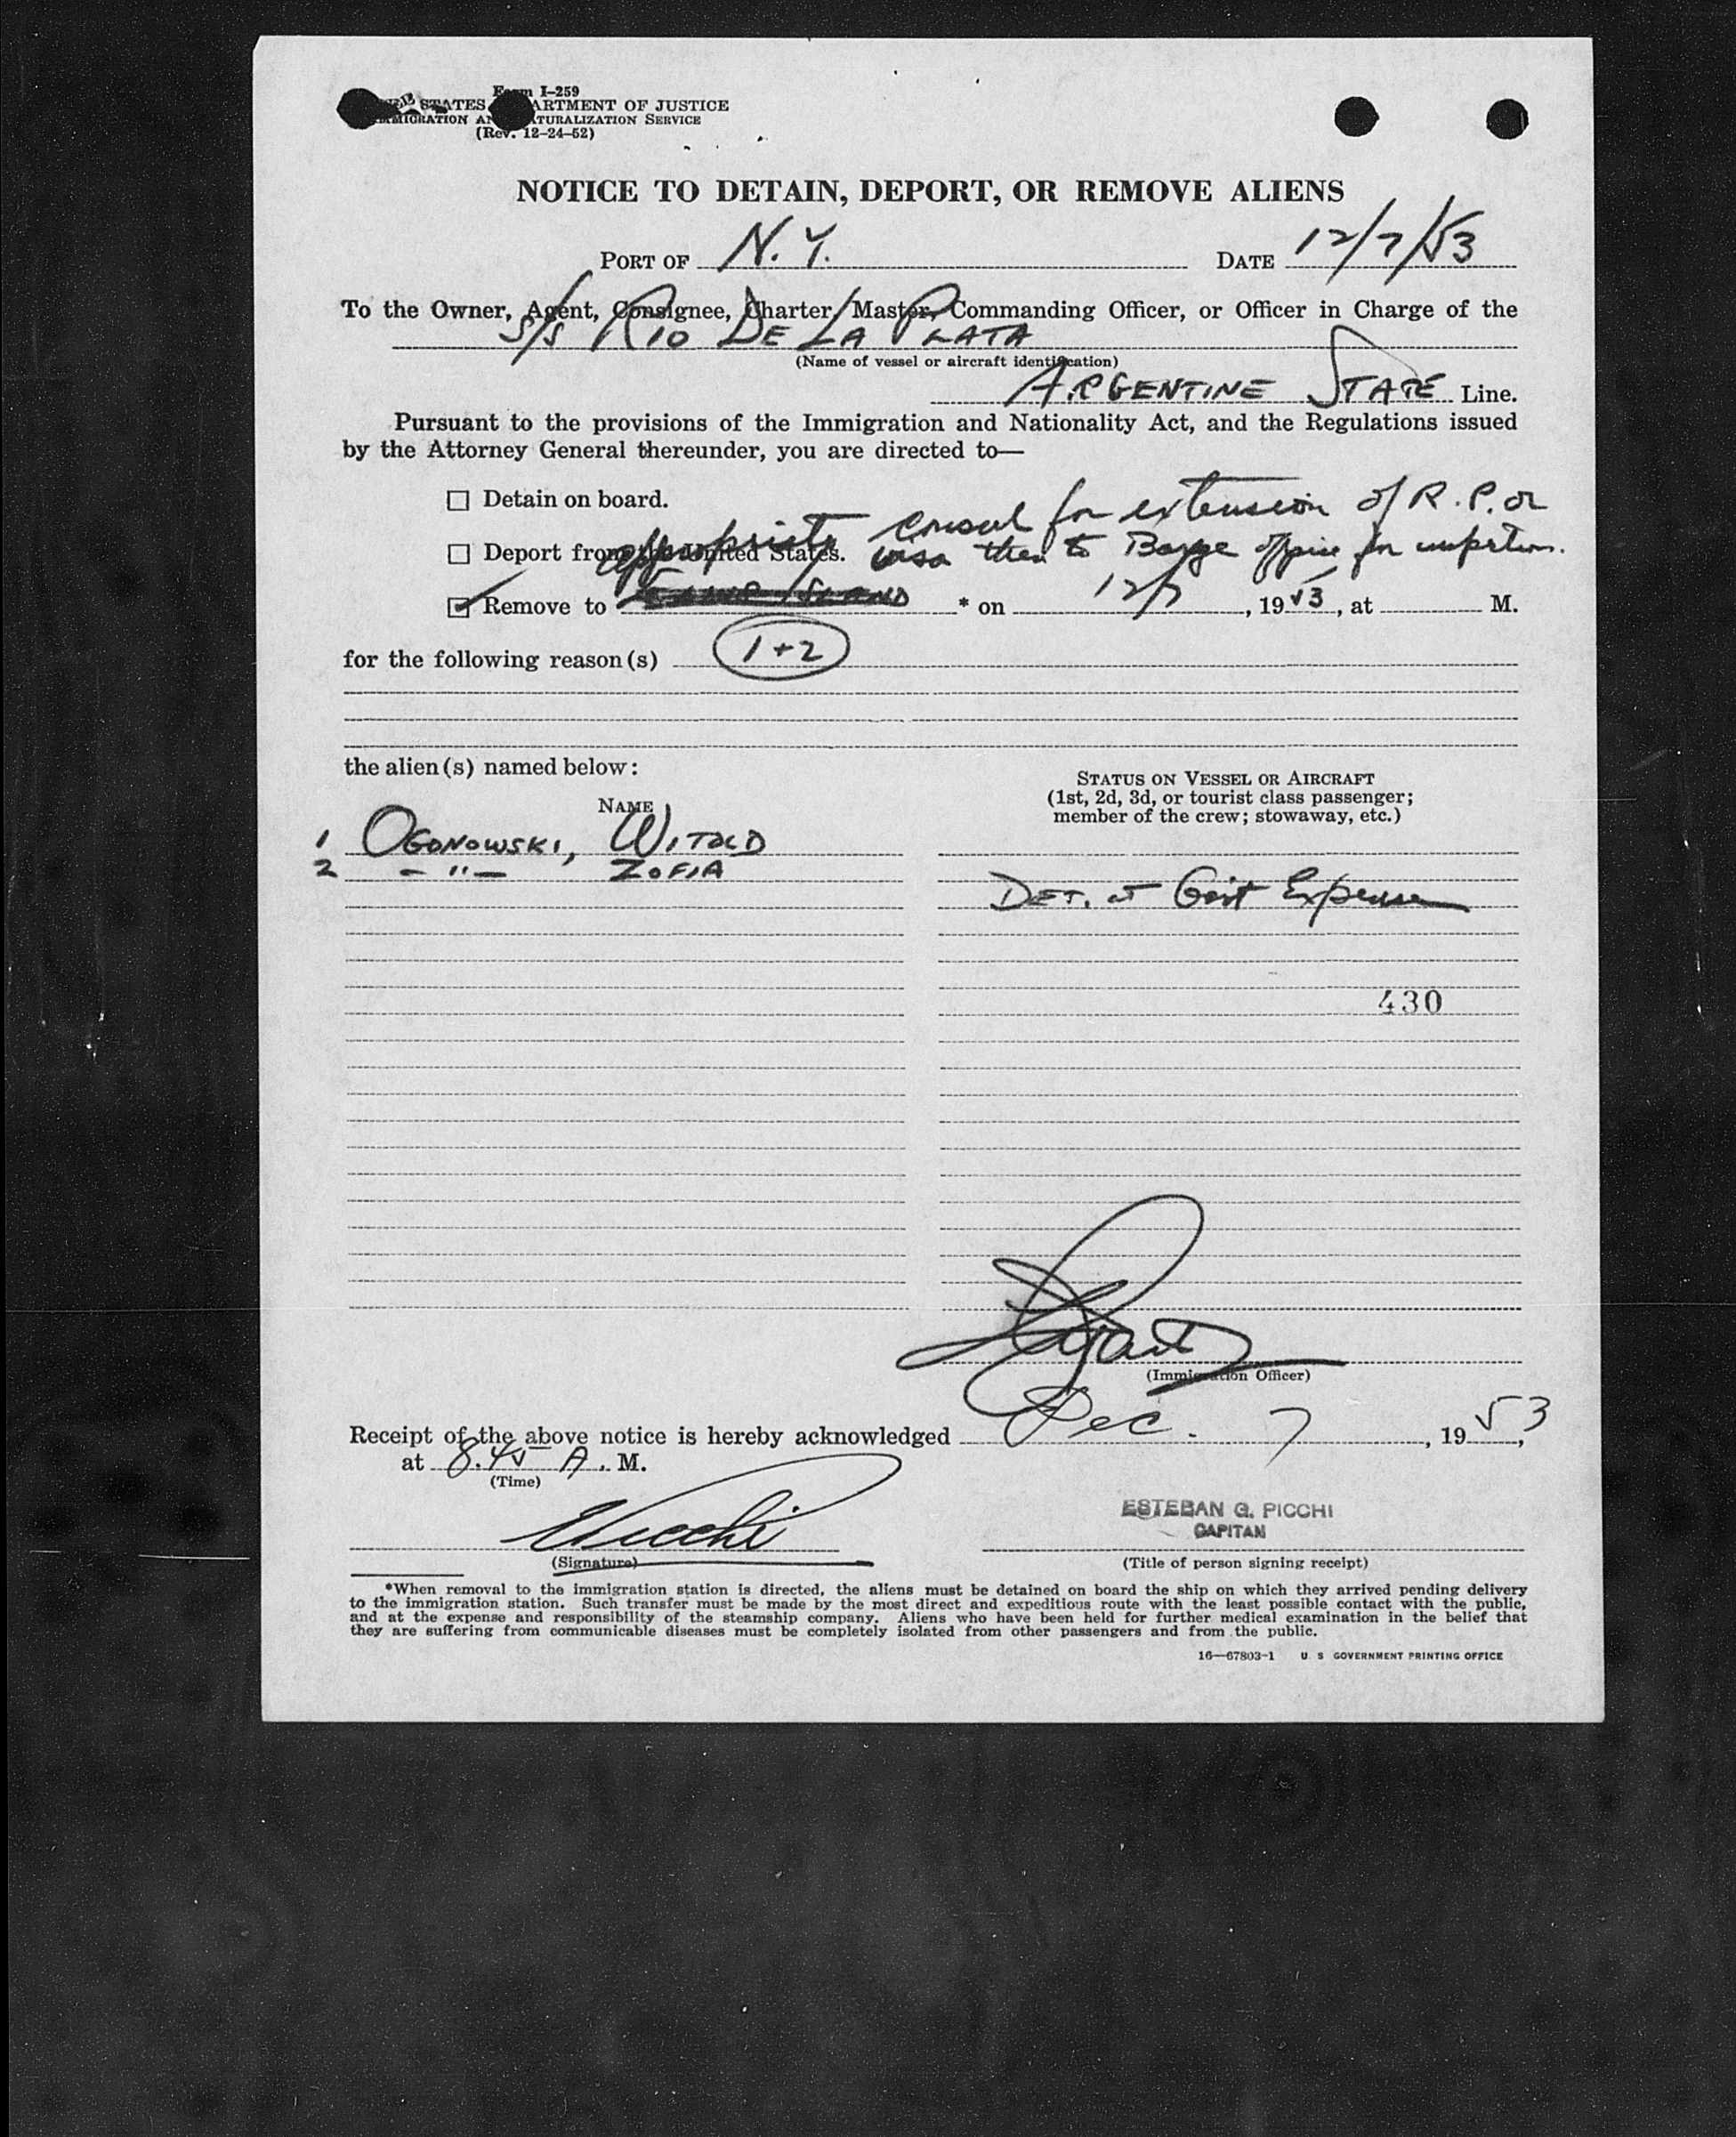 Form I-259
STATES DEPARTMENT OF JUSTICE
IMMIGRATION AND NATURALIZATION SERVICE
(Rev. 12-24-52)
NOTICE TO DETAIN, DEPORT, OR REMOVE ALIENS
PORT OF N.Y. DATE 12/7/53
To the Owner, Agent, Consignee, Charter, Master, Commanding Officer, or Officer in Charge of the
S/S RIO DE LA PLATA
(Name of vessel or aircraft identification)
ARGENTINE STATE Line.
Pursuant to the provisions of the Immigration and Nationality Act, and the Regulations issued
by the Attorney General thereunder, you are directed to—
☐ Detain on board.
appropriate consul for extension of R.P. or
visa then to Barge office for
☐ Deport from the United States.
☑ Remove to * on 12/7, 1953, at M.
for the following reason(s) 1+2
the alien(s) named below:
NAME
STATUS ON VESSEL OR AIRCRAFT
(1st, 2d, 3d, or tourist class passenger;
member of the crew; stowaway, etc.)
1 OGONOWSKI, WITOLD
2 - " - ZOFIA
DET. at Govt Expense
430
(Immigration Officer)
Receipt of the above notice is hereby acknowledged Dec. 7, 1953,
at 8.45 A. M.
(Time)
EPicchi
(Signature)
ESTEBAN G. PICCHI
CAPITAN
(Title of person signing receipt)
*When removal to the immigration station is directed, the aliens must be detained on board the ship on which they arrived pending delivery
to the immigration station. Such transfer must be made by the most direct and expeditious route with the least possible contact with the public,
and at the expense and responsibility of the steamship company. Aliens who have been held for further medical examination in the belief that
they are suffering from communicable diseases must be completely isolated from other passengers and from the public.
16—67803-1 U. S. GOVERNMENT PRINTING OFFICE